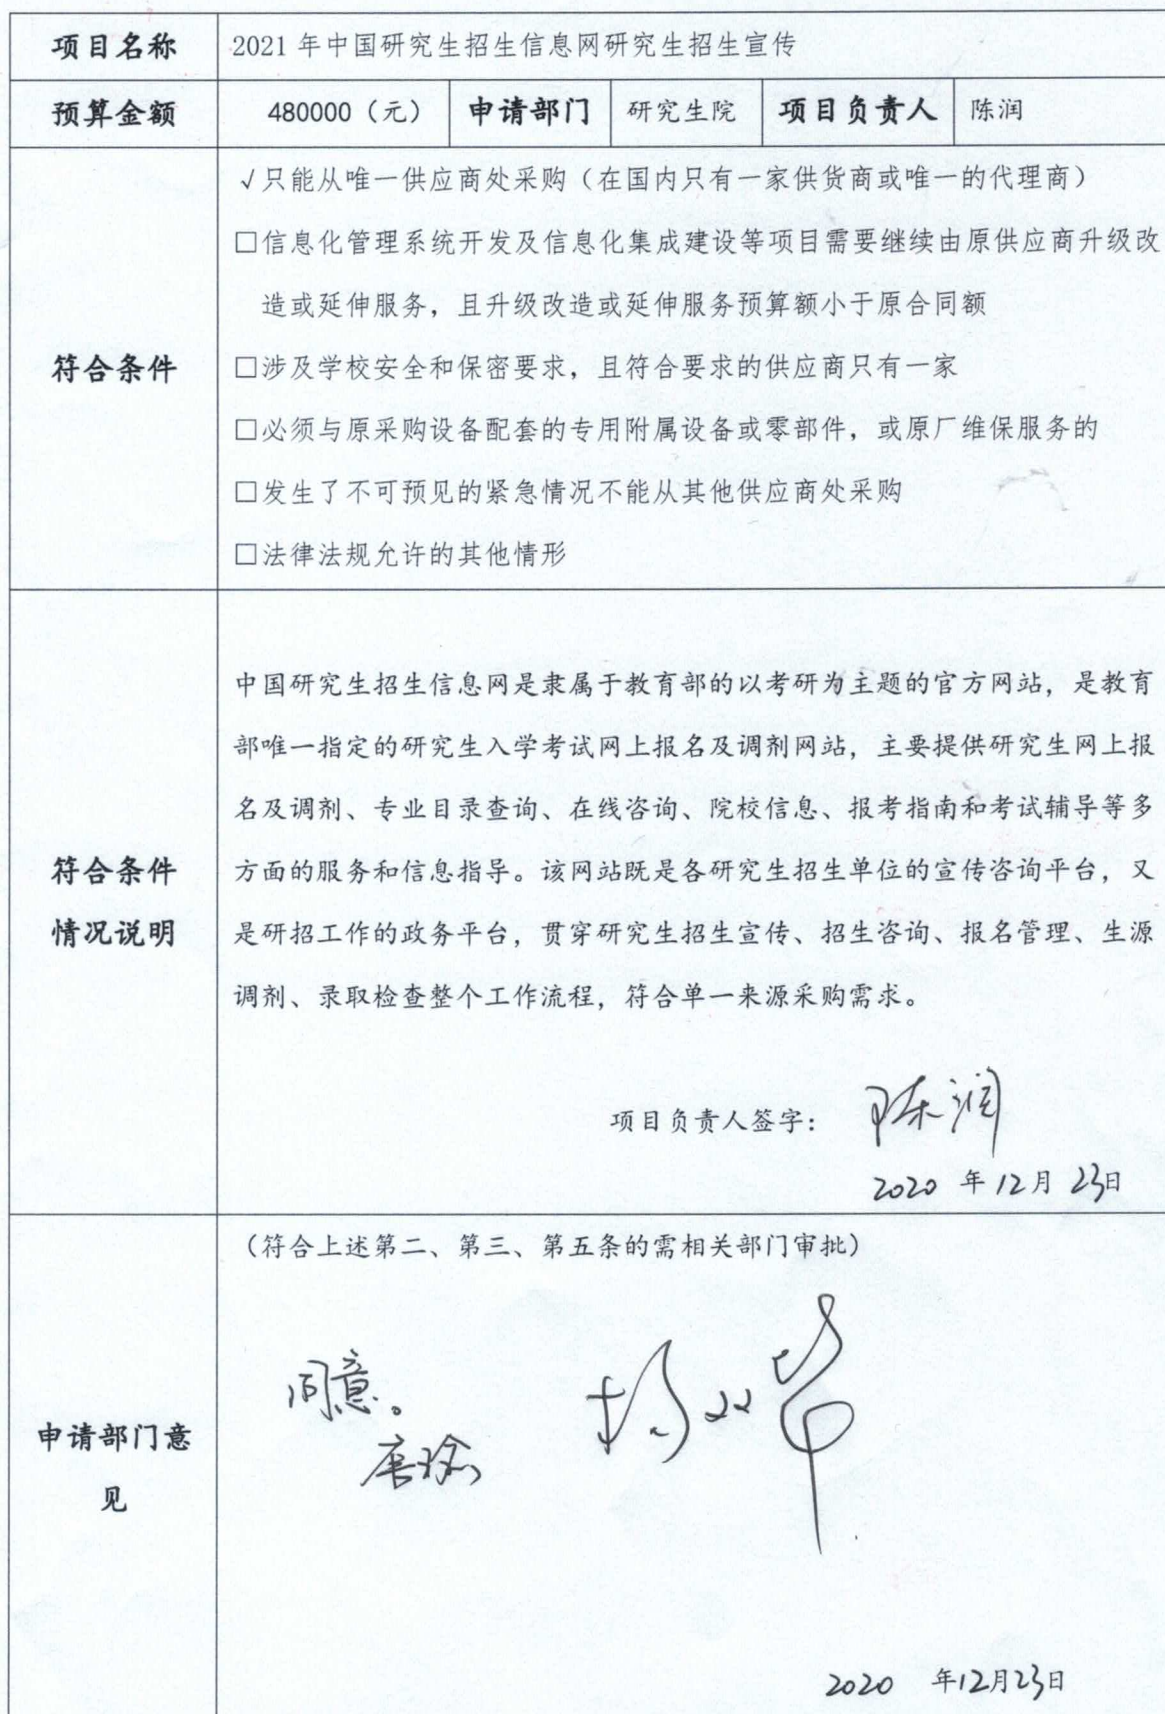 项目名称 2021年中国研究生招生信息网研究生招生宣传
预算金额 480000（元） 申请部门 研究生院 项目负责人 陈润
符合条件
√只能从唯一供应商处采购（在国内只有一家供货商或唯一的代理商）
□信息化管理系统开发及信息化集成建设等项目需要继续由原供应商升级改
造或延伸服务，且升级改造或延伸服务预算额小于原合同额
□涉及学校安全和保密要求，且符合要求的供应商只有一家
□必须与原采购设备配套的专用附属设备或零部件，或原厂维保服务的
□发生了不可预见的紧急情况不能从其他供应商处采购
□法律法规允许的其他情形
符合条件
情况说明
中国研究生招生信息网是隶属于教育部的以考研为主题的官方网站，是教育
部唯一指定的研究生入学考试网上报名及调剂网站，主要提供研究生网上报
名及调剂、专业目录查询、在线咨询、院校信息、报考指南和考试辅导等多
方面的服务和信息指导。该网站既是各研究生招生单位的宣传咨询平台，又
是研招工作的政务平台，贯穿研究生招生宣传、招生咨询、报名管理、生源
调剂、录取检查整个工作流程，符合单一来源采购需求。
项目负责人签字： 陈润
2020 年12月23日
申请部门意
见
（符合上述第二、第三、第五条的需相关部门审批）
同意。
2020 年12月23日